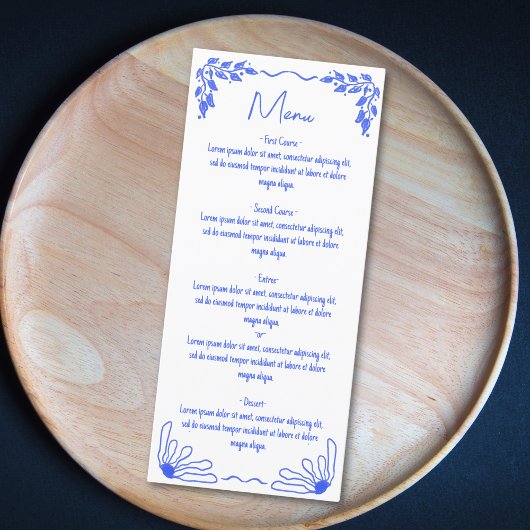 Menu
- First Course -
Lorem ipsum dolor sit amet, consectetur adipiscing elit,
sed do eiusmod tempor incididunt ut labore et dolore
magna aliqua.
- Second Course -
Lorem ipsum dolor sit amet, consectetur adipiscing elit,
sed do eiusmod tempor incididunt ut labore et dolore
magna aliqua.
- Entree-
Lorem ipsum dolor sit amet, consectetur adipiscing elit,
sed do eiusmod tempor incididunt ut labore et dolore
magna aliqua.
-or-
Lorem ipsum dolor sit amet, consectetur adipiscing elit,
sed do eiusmod tempor incididunt ut labore et dolore
magna aliqua.
- Dessert-
Lorem ipsum dolor sit amet, consectetur adipiscing elit,
sed do eiusmod tempor incididunt ut labore et dolore
magna aliqua.